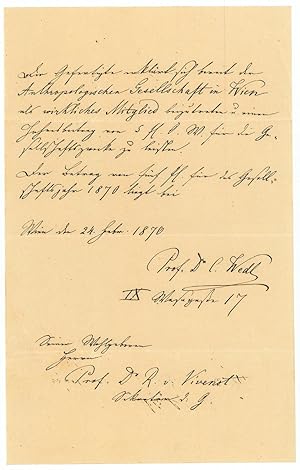 Der Gefertigte erklärt sich bereit der
Anthropologischen Gesellschaft in Wien
als wirkliches Mitglied beizutreten u. einen
Jahresbeitrag von 5 fl. ö. W. für die Ge-
sellschaftszwecke zu leisten.
Der Betrag von fünf fl. für das Gesell-
schaftsjahr 1870 liegt bei
Wien den 24. Febr. 1870
Prof. Dr C. Wedl
IX Wasagasse 17
Seiner Wohlgeboren
Herrn
Prof. Dr R. v. Vivenot
Sekretär d. G.